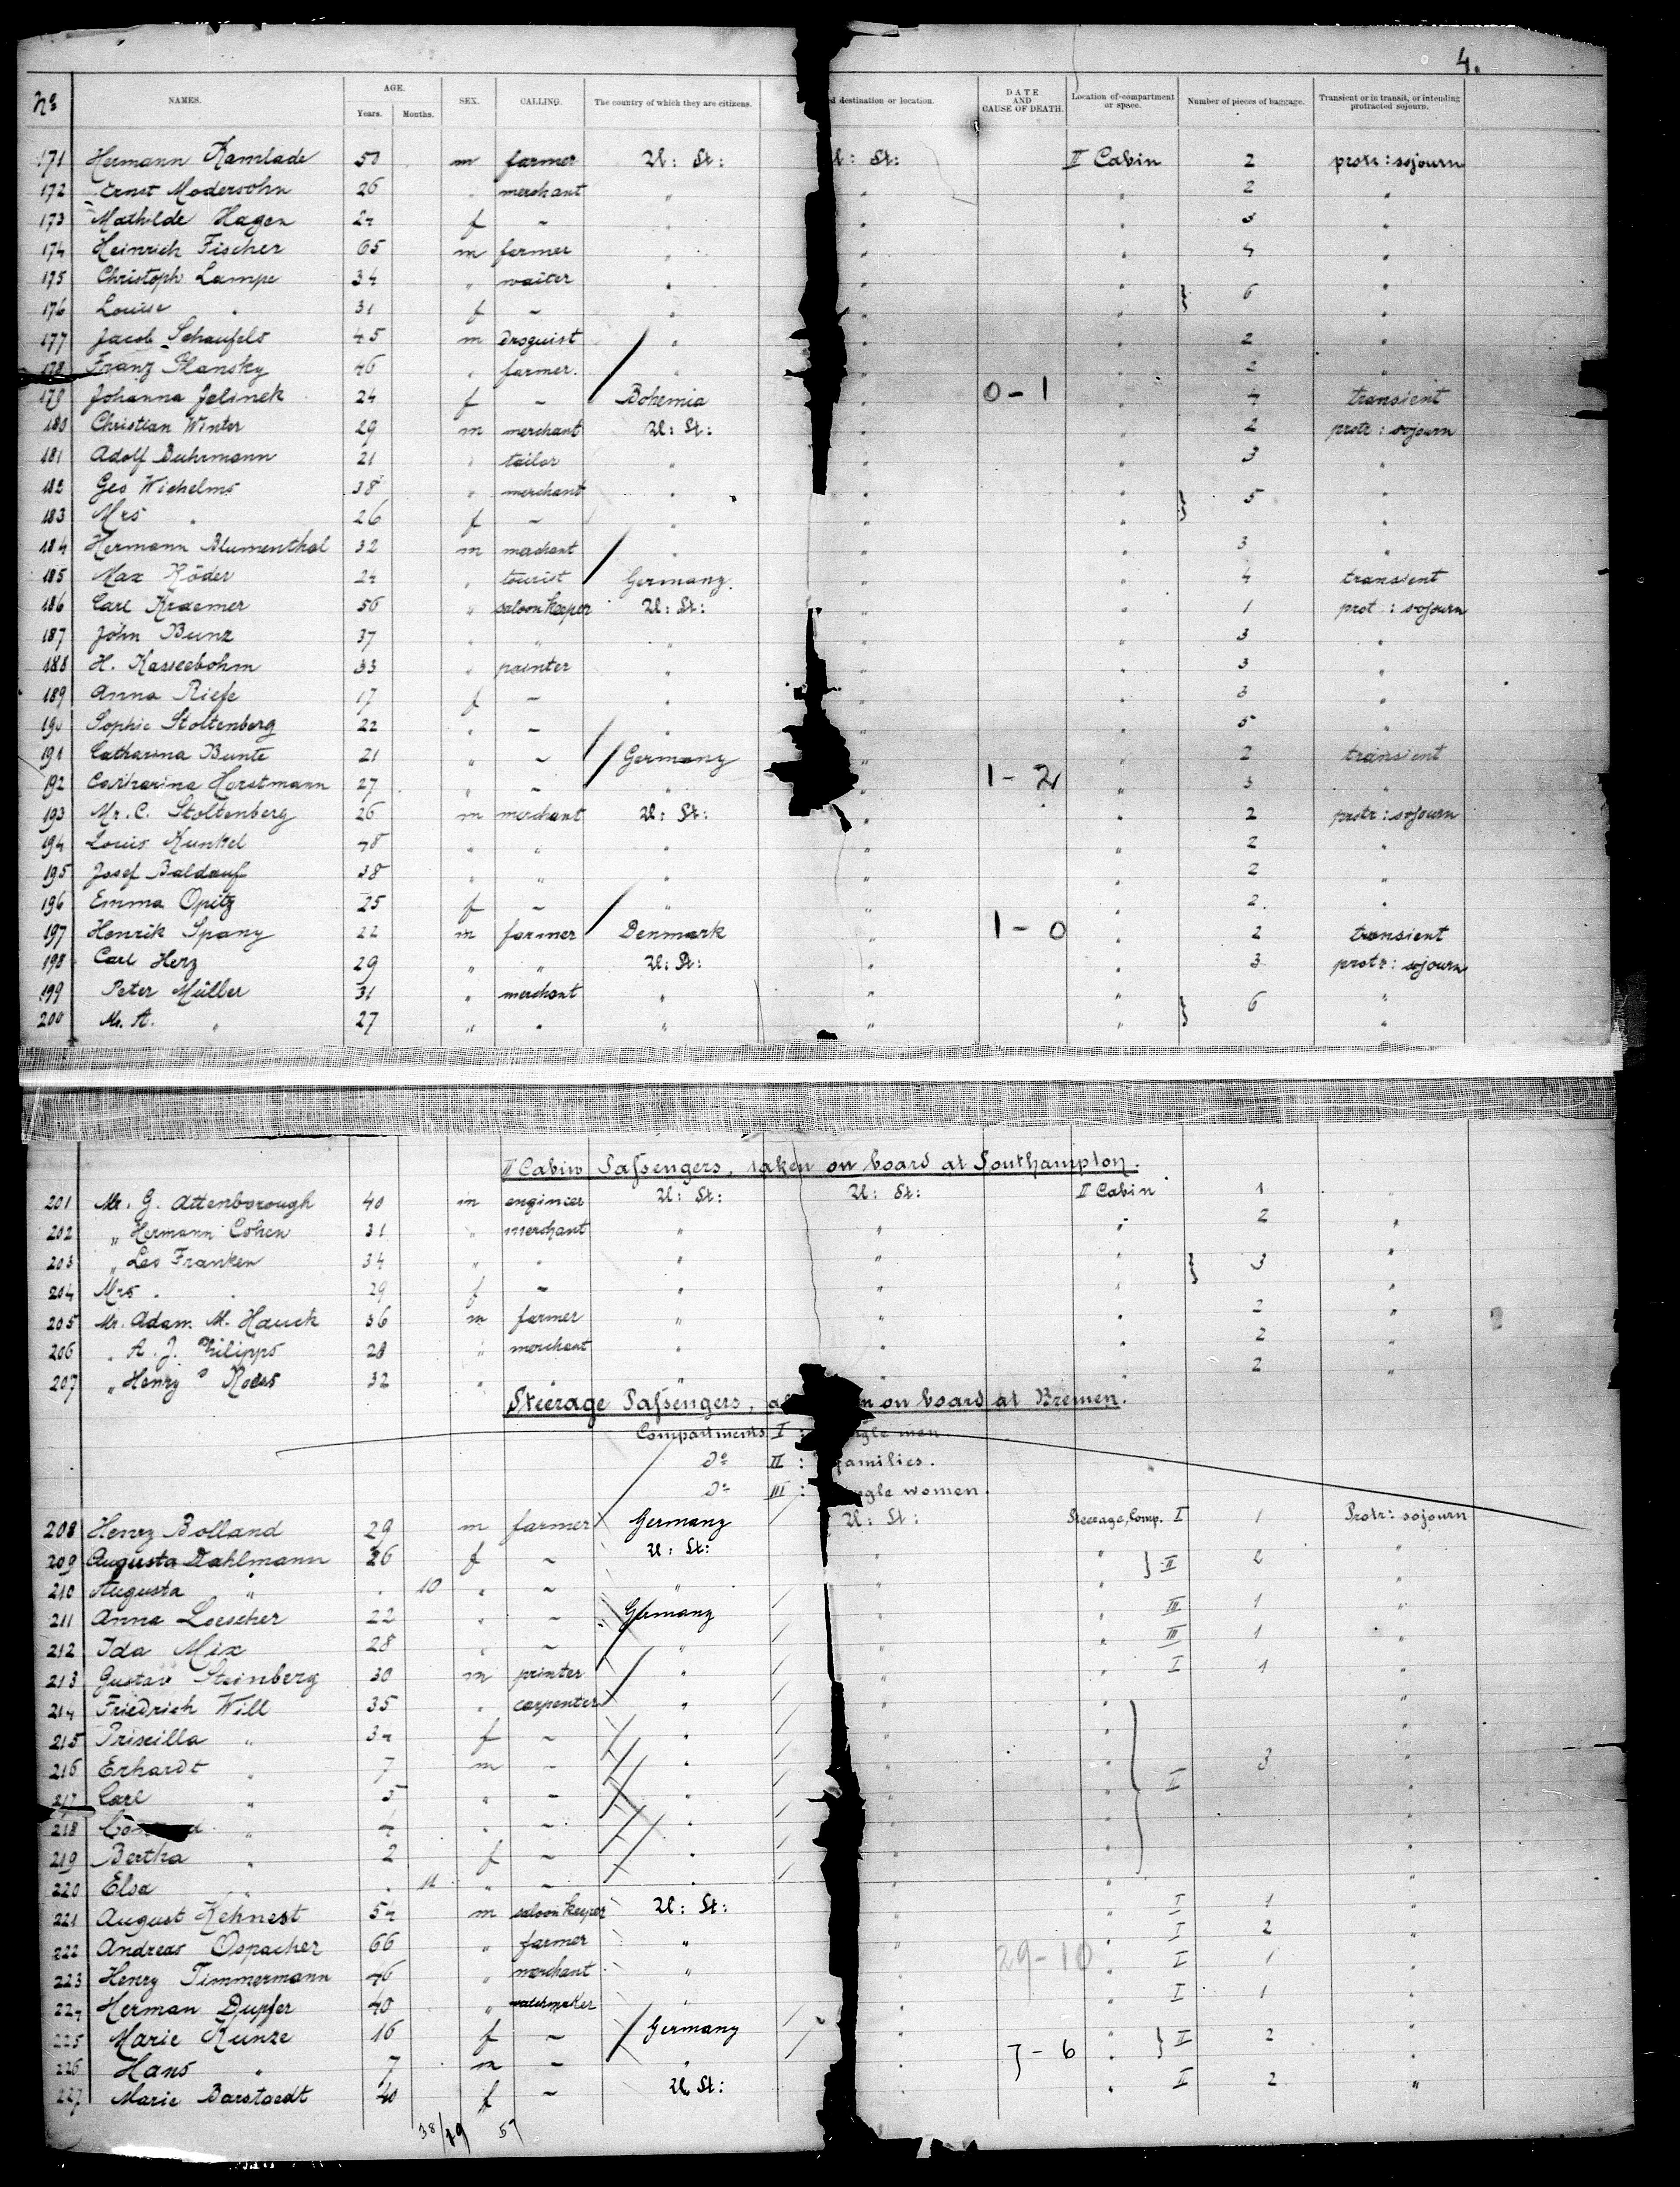 4.
No NAMES. AGE. Years. Months. SEX. CALLING. The country of which they are citizens. d destination or location. DATE AND CAUSE OF DEATH. Location of compartment or space. Number of pieces of baggage. Transient or in transit, or intending protracted sojourn.
171 Hermann Kamlade 50 m farmer U: St: U: St: II Cabin 2 protr: sojourn
172 Ernst Modersohn 26 " merchant " " " 2 "
173 Mathilde Hagen 24 f - " " " 3 "
174 Heinrich Fischer 65 m farmer " " " 4 "
175 Christoph Lampe 34 " waiter " " " } 6 "
176 Louise " 31 f - " " " "
177 Jacob Schaufels 45 m droguist " " " 2 "
178 Franz Stansky 46 " farmer. " " " 2 "
179 Johanna Jelinek 24 f - Bohemia " 0-1 " 4 transient
180 Christian Winter 29 m merchant U: St: " " 2 protr: sojourn
181 Adolf Buhrmann 21 " tailor " " " 3 "
182 Geo Wichelms 38 " merchant " " " } 5 "
183 Mrs " 26 f - " " " "
184 Hermann Blumenthal 32 m merchant " " " 3 "
185 Max Röder 24 " tourist Germany. " " 4 transient
186 Carl Kraemer 56 " saloon keeper U: St: " " 1 prot: sojourn
187 John Bunz 37 " " " " " 3 "
188 H. Kasseebohm 33 " painter " " " 3 "
189 Anna Riefe 17 f - " " " 3 "
190 Sophie Stoltenberg 22 " - " " " 5 "
191 Catharina Bunte 21 " - Germany " " 2 transient
192 Catharina Horstmann 27 " - " " 1-2 " 3 "
193 Mr. C. Stoltenberg 26 m merchant U: St: " " 2 protr: sojourn
194 Louis Kunkel 48 " " " " " 2 "
195 Josef Baldauf 38 " " " " " 2 "
196 Emma Opitz 25 f - " " " 2. "
197 Henrik Spany 22 m farmer Denmark " 1-0 " 2 transient
198 Carl Herz 29 " " U: St: " " 3 protr: sojourn
199 Peter Müller 31 " merchant " " " } 6 "
200 Mr. A. " 27 " " " " " "
II Cabin Passengers, taken on board at Southampton.
201 Mr. G. Attenborough 40 m engineer U: St: U: St: II Cabin 1 "
202 " Hermann Cohen 31 " merchant " " " 2 "
203 " Leo Franken 34 " " " " " } 3 "
204 Mrs " 29 f - " " " "
205 Mr. Adam M. Hauck 36 m farmer " " " 2 "
206 " A. J. Philipps 28 " merchant " " " 2 "
207 " Henry Roess 32 " " " " " 2 "
Steerage Passengers, on board at Bremen.
Compartments I : men
Do II : families.
Do III : women.
208 Henry Bolland 29 m farmer Germany U: St: Steerage, Comp. I 1 Protr: sojourn
209 Augusta Dahlmann 26 f - U: St: " " } II 2 "
210 Augusta " " 10 " - " " " "
211 Anna Loescher 22 " - Germany " " III 1 "
212 Ida Mix 28 " - " " " III 1 "
213 Gustav Steinberg 30 m printer " " " I 1 "
214 Friedrich Will 35 " carpenter " " " "
215 Priscilla " 34 f - " " " "
216 Erhardt " 7 m - " " " 3 "
217 Carl " 5 " - " " " II "
218 " 4 " - " " "
219 Bertha " 2 f - " " " "
220 Elsa " " 11 " - " " " "
221 August Kehnest 54 m saloon keeper U: St: " " I 1 "
222 Andreas Ospacher 66 " farmer " " " I 2 "
223 Henry Timmermann 46 " merchant " " 29-10 " I 1 "
224 Herman Dupfer 40 " watchmaker " " " I 1 "
225 Marie Kunze 16 f - Germany " " } II 2 "
226 Hans " 7 m - " " 7-6 " "
227 Marie Barstaedt 40 f - U. St: " " II 2 "
38/19 57